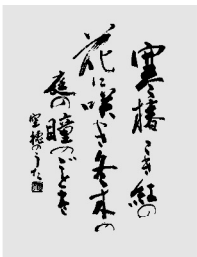 寒椿こき紅の
花に咲き冬木の
庭の瞳のごとき
空穂のうた